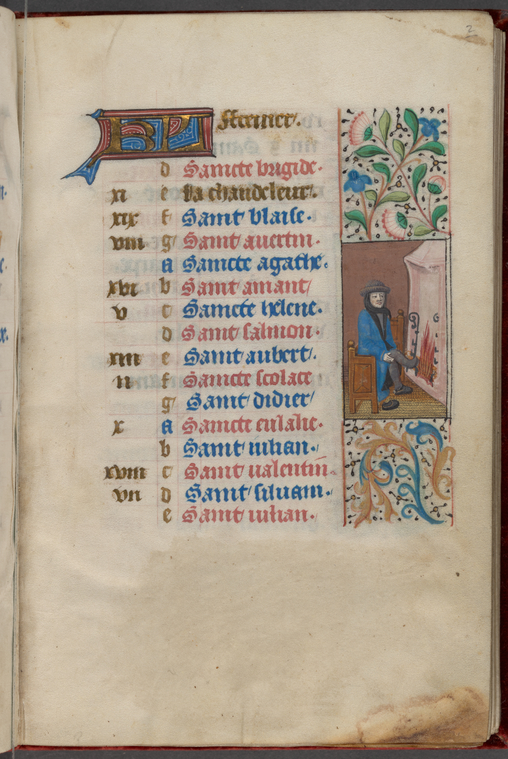 2
KL Feurier.
d Saincte brigide.
xi e la chandeleur.
xix f Saint blaise.
viii g Saint auertin.
A Saincte agathe.
xvi b Saint amant
v c Saincte helene.
d Saint salmon.
xiii e Saint aubert.
ii f Saincte scolace
g Saint didier
x A Saincte eulalie.
b Saint iulian.
xviii c Saint ualentin.
vii d Saint siluain.
e Saint iulian.